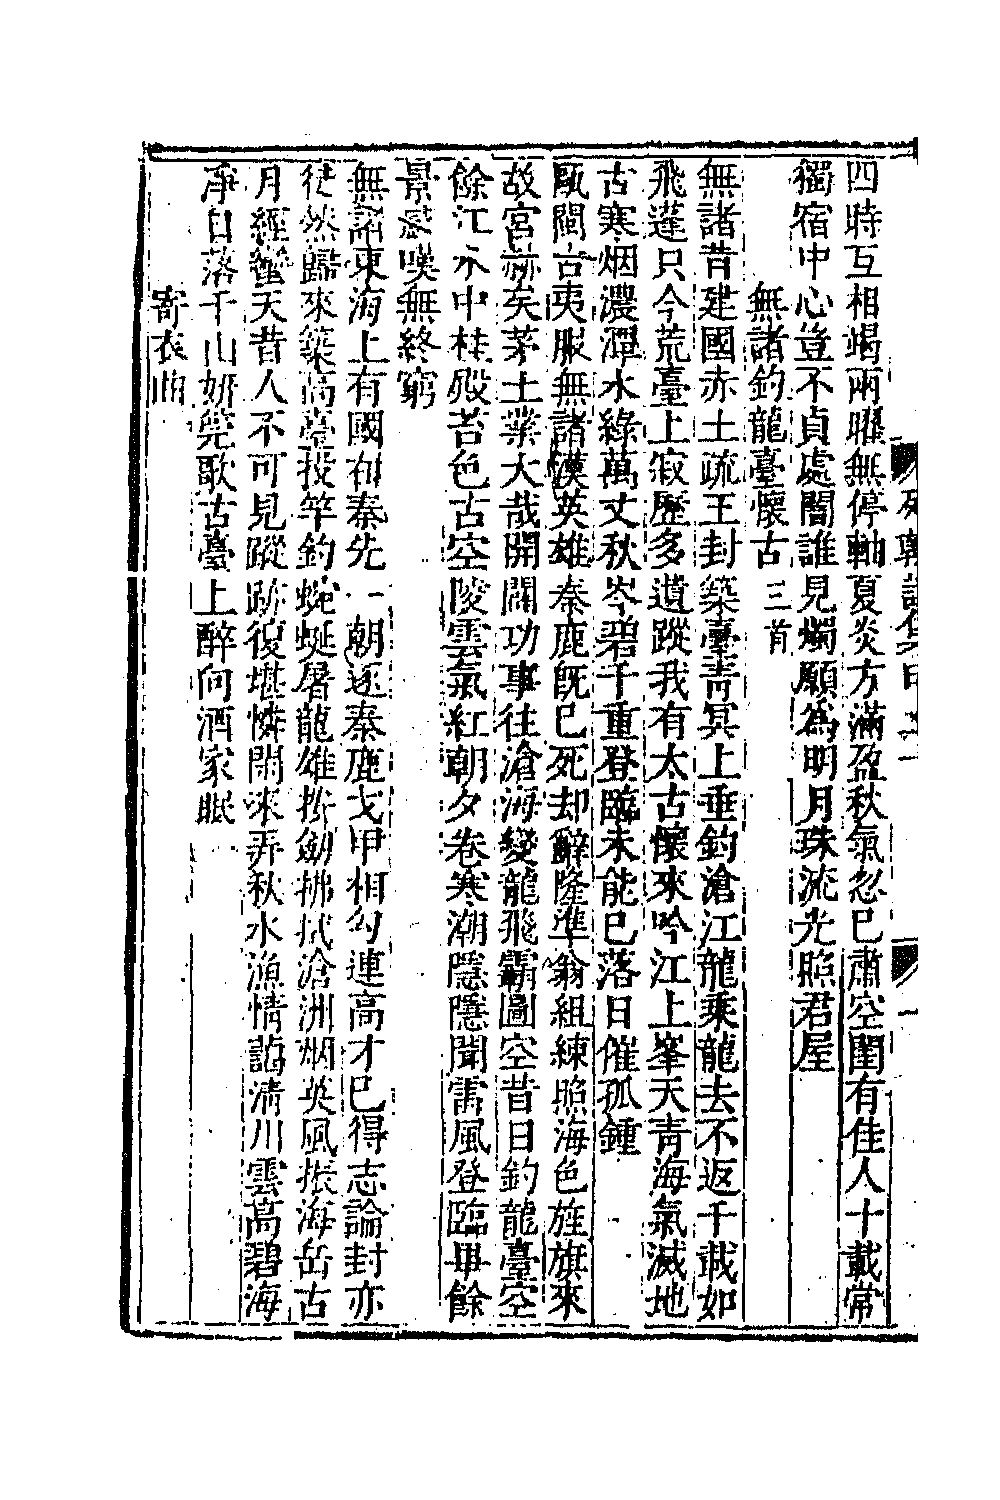 四時互相竭兩曜無停軸夏炎方滿盈秋氣忽已肅空閨有佳人十載常
獨宿中心豈不貞處闇誰見燭願為明月珠流光照君屋
無諸釣龍臺懷古三首
無諸昔建國赤土疏王封築臺青冥上垂釣滄江龍乘龍去不返千載如
飛蓬只今荒臺上寂歷多遺蹤我有太古懷來吟江上峯天青海氣滅地
古寒烟濃潭水綠萬丈秋岑碧千重登臨未能已落日催孤鍾
甌閩古夷服無諸漢英雄秦鹿既已死却辭隆準翁組練照海色旌旗來
故宮赫矣茅土業大哉開闢功事往滄海變龍飛霸圖空昔日釣龍臺空
餘江水中桂殿苔色古空陵雲氣紅朝夕卷寒潮隱隱聞雷風登臨畢餘
景感嘆無終窮
無諸東海上有國自秦先一朝逐秦鹿戈甲相勾連高才已得志論封亦
徒然歸來築高臺投竿釣蜿蜒屠龍雄掛劒拂拭滄洲烟英風振海岳古
月經蠻天昔人不可見蹤跡復堪憐閑來弄秋水漁情詣清川雲高碧海
淨日落千山妍莞歌古臺上醉向酒家眠
寄衣曲
列朝詩集甲